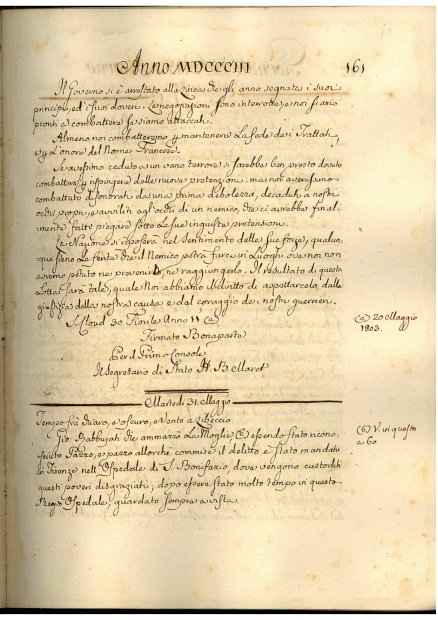 Anno MDCCCIII
161
Il Governo si è arrestato alla linea che gli anno segnata i suoi
principj, ed i suoi doveri. Le negoziazioni sono interrotte, e noi siamo
pronti a combattere se siamo attaccati.
Almeno noi combatteremo p mantenere La fede dei Trattati,
e p L'onore del Nome Francese.
Se avessimo ceduto a un vano terrore si sarebbe ben presto dovuto
combattere p rispingere delle nuove pretenzioni: ma noi averessimo
combattuto disonorati da una prima debolezza, decaduti a nostri
occhi proprj, e avviliti agl'occhi di un nemico, che ci avrebbe final-
mente fatto piegare sotto Le sue ingiuste pretensioni.
La Nazione si riposerà nel sentimento delle sue forze, qualun-
que sieno Le ferite che il Nemico potrà farci in Luoghi ove noi non
avremo potuto ne prevenirlo, ne raggiungerlo. Il resultato di questa
Lotta sarà tale, quale Noi abbiamo il diritto di aspettarcelo dalla
giustizia della nostra causa e dal coraggio dei nostri guerrieri.
S. Cloud 30 Fiorile Anno 11 (a)
(a) 20 Maggio
1803.
Firmato Bonaparte
Per il Primo Console
Il Segretario di Stato H. B. Maret
Martedi 31. Maggio
Tempo frà chiaro, e oscuro, e Vento a Libeccio.
Gio. Babbujati che ammazzò La Moglie (b) essendo stato ricono-
(b) V. in questo
a 60
sciuto Pazzo, e pazzo allorchè commise il delitto è stato mandato
in Firenze nell'Ospedale di S. Bonifazio, dove vengono custoditi
questi poveri disgraziati; dopo essere stato molto tempo in questo
Regio Ospedale, guardato sempre a vista.